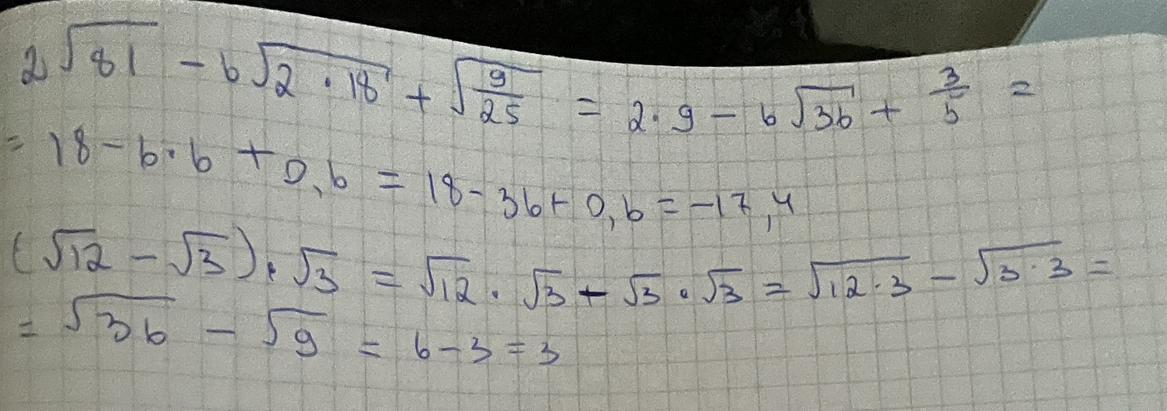 2√81 - 6√2·18 + √9/25 = 2·9 - 6√36 + 3/5 =
= 18 - 6·6 + 0,6 = 18 - 36 + 0,6 = -17,4
(√12 - √3)·√3 = √12·√3 - √3·√3 = √12·3 - √3·3 =
= √36 - √9 = 6 - 3 = 3